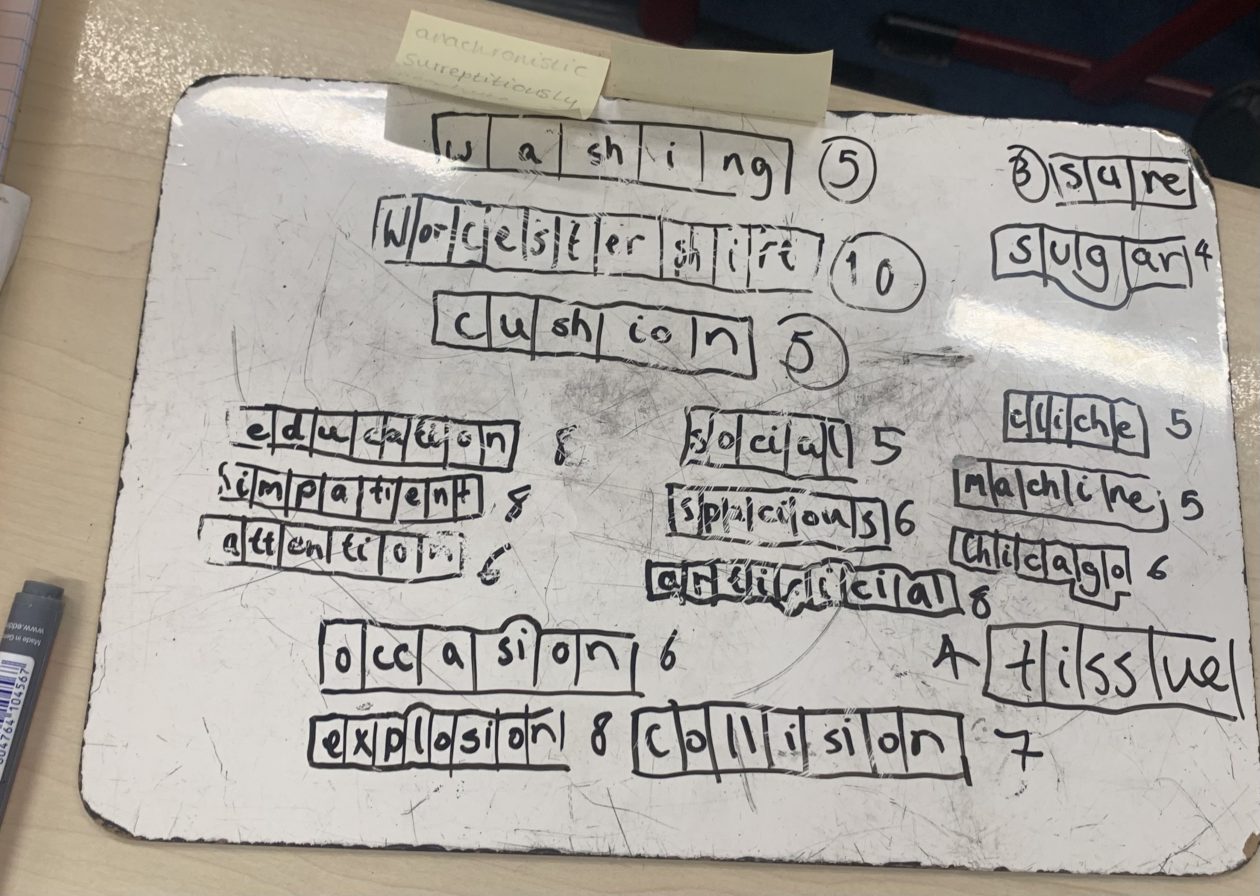 anachronistic
surreptitiously
washing 5
3 sure
Worcestershire 10
sugar 4
cushion 5
education 8
social 5
cliche 5
impatient 8
spacious 6
machine 5
attention 6
artificial 8
Chicago 6
occasion 6
4 tissue
explosion 8
collision 7
Made in Ger
www.edd
104567